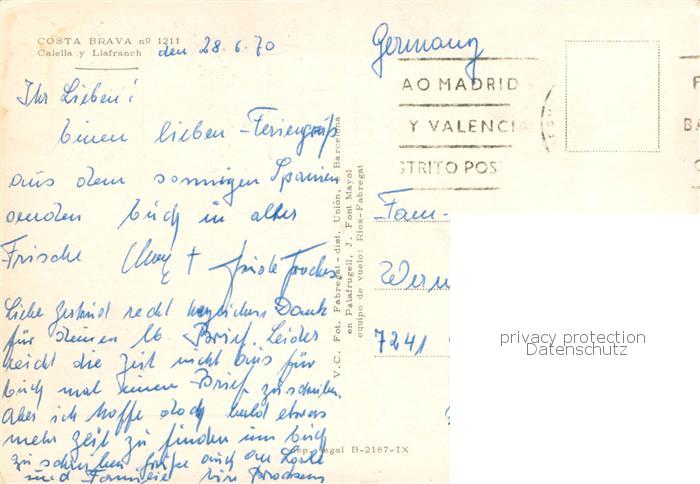 COSTA BRAVA nº 1211
Calella y Llafranch
den 28.6.70
Ihr Lieben!
Einen lieben Feriengruß
aus dem sonnigen Spanien
senden Euch in alter
Frische
Liebe recht herzlichen Dank
für deinen lb. Brief. Leider
reicht die Zeit nicht aus für
Euch mal einen Brief zu schreiben.
Aber ich hoffe doch bald etwas
mehr Zeit zu finden um Euch
zu schreiben Grüße auch an
und Familie
V.C. Fot. Fabregat - dist. Unión, Barcelona
en Palafrugell, J. Font Mayol
equipo de vuelo: Ríos-Fabregat
Dep. legal B-2187-IX
Germany
AO MADRID
Y VALENCIA
STRITO POS
Fam.
Wern
7241
privacy protection
Datenschutz